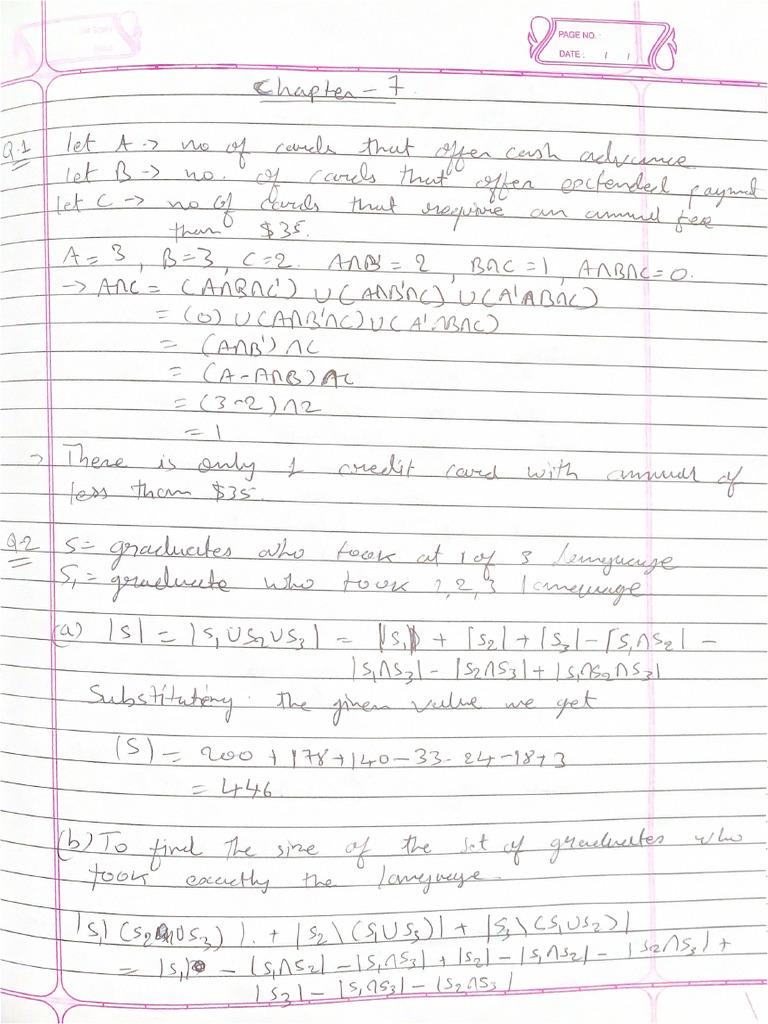 PAGE NO. :
DATE : / /
Chapter - 7.
Q.1 let A -> no of cards that offer cash advance
let B -> no. of cards that offer extended paymet
let C -> no of cards that require an annual fee
than $35.
A = 3, B = 3, C = 2. A∩B = 2, B∩C = 1, A∩B∩C = 0.
-> A∩C = (A∩B∩C') ∪ (A∩B'∩C) ∪ (A'∩B∩C)
= (0) ∪ (A∩B'∩C) ∪ (A'∩B∩C)
= (A∩B') ∩C
= (A - A∩B) ∩C
= (3-2) ∩2
= 1
-> There is only 1 credit card with annual of
less than $35.
Q-2 S = graduates who took at 1 of 3 language
S, = graduate who took 1,2,3 language
(a) |S| = |S₁∪S₂∪S₃| = |S₁| + |S₂| + |S₃| - |S₁∩S₂| -
|S₁∩S₃| - |S₂∩S₃| + |S₁∩S₂∩S₃|
Substituting the given value we get
(S) = 200 + 178 + 140 - 33 - 24 - 18 + 3
= 446.
(b) To find the size of the set of graduates who
took exactly the language.
|S₁\(S₂∪S₃)| + |S₂\(S₁∪S₃)| + |S₃\(S₁∪S₂)|
= |S₁| - |S₁∩S₂| - |S₁∩S₃| + |S₂| - |S₁∩S₂| - |S₂∩S₃| +
|S₃| - |S₁∩S₃| - |S₂∩S₃|